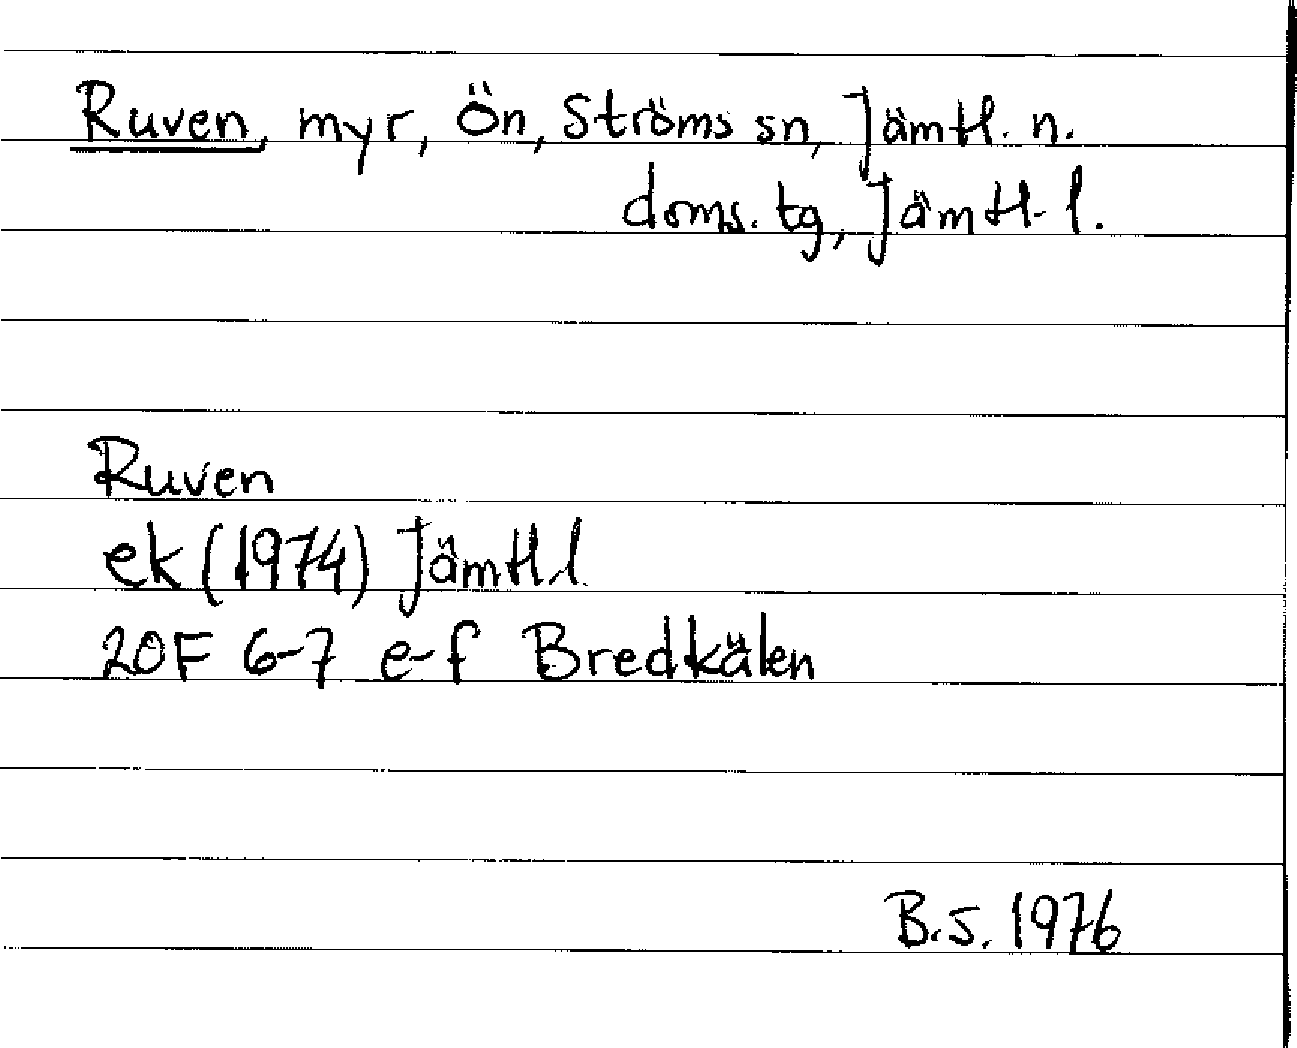 Ruven, myr, Ön, Ströms sn, Jämtl. n.
doms. tg, Jämtl. l.
Ruven
ek (1974) Jämtl.l.
20F 6-7 e-f Bredkälen
B.S. 1976